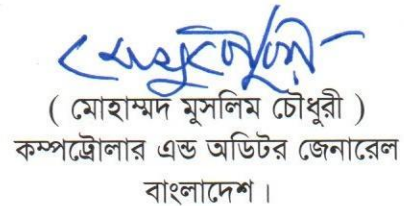 ( মোহাম্মদ মুসলিম চৌধুরী )
কম্পট্রোলার এন্ড অডিটর জেনারেল
বাংলাদেশ।